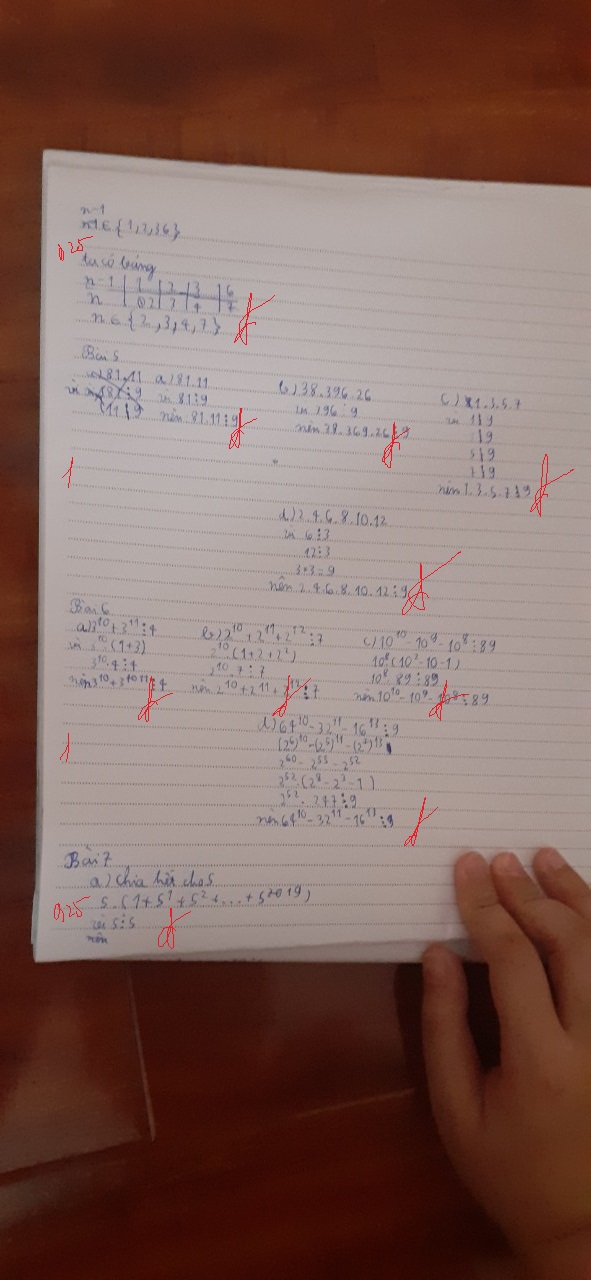 n-1
n-1 ∈ {1,2,3 6}
0,25
ta có bảng
n-1 | 1 | 2 | 3 | 6
n | 2 | 3 | 4 | 7
n ∈ {2, 3, 4, 7}
Bài 5
a) 81.11
vì 81⋮9
nên 81.11⋮9
b) 38.396.26
vì 396⋮9
nên 38.369.26⋮9
c) 1.3.5.7
nên 1.3.5.7⋮̸9
1
d) 2.4.6.8.10.12
vì 6⋮3
12⋮3
3.3=9
nên 2.4.6.8.10.12⋮9
Bài 6
a) 3¹⁰+3¹¹⋮4
vì 3¹⁰.(1+3)
3¹⁰.4⋮4
b) 2¹⁰+2¹¹+2¹²⋮7
2¹⁰(1+2+2²)
2¹⁰.7⋮7
nên 2¹⁰+2¹¹+2¹²⋮7
c) 10¹⁰-10⁹-10⁸⋮89
10⁸(10²-10-1)
10⁸.89⋮89
nên 10¹⁰-10⁹-10⁸⋮89
1
d) 64¹⁰-32¹¹-16¹³⋮9
(2⁶)¹⁰-(2⁵)¹¹-(2⁴)¹³
2⁶⁰-2⁵⁵-2⁵²
2⁵².(2⁸-2³-1)
2⁵².247⋮9
nên 64¹⁰-32¹¹-16¹³⋮9
Bài 7
a) Chia hết cho 5
0,25
5.(1+5¹+5²+...+5²⁰¹⁹)
vì 5⋮5
nên